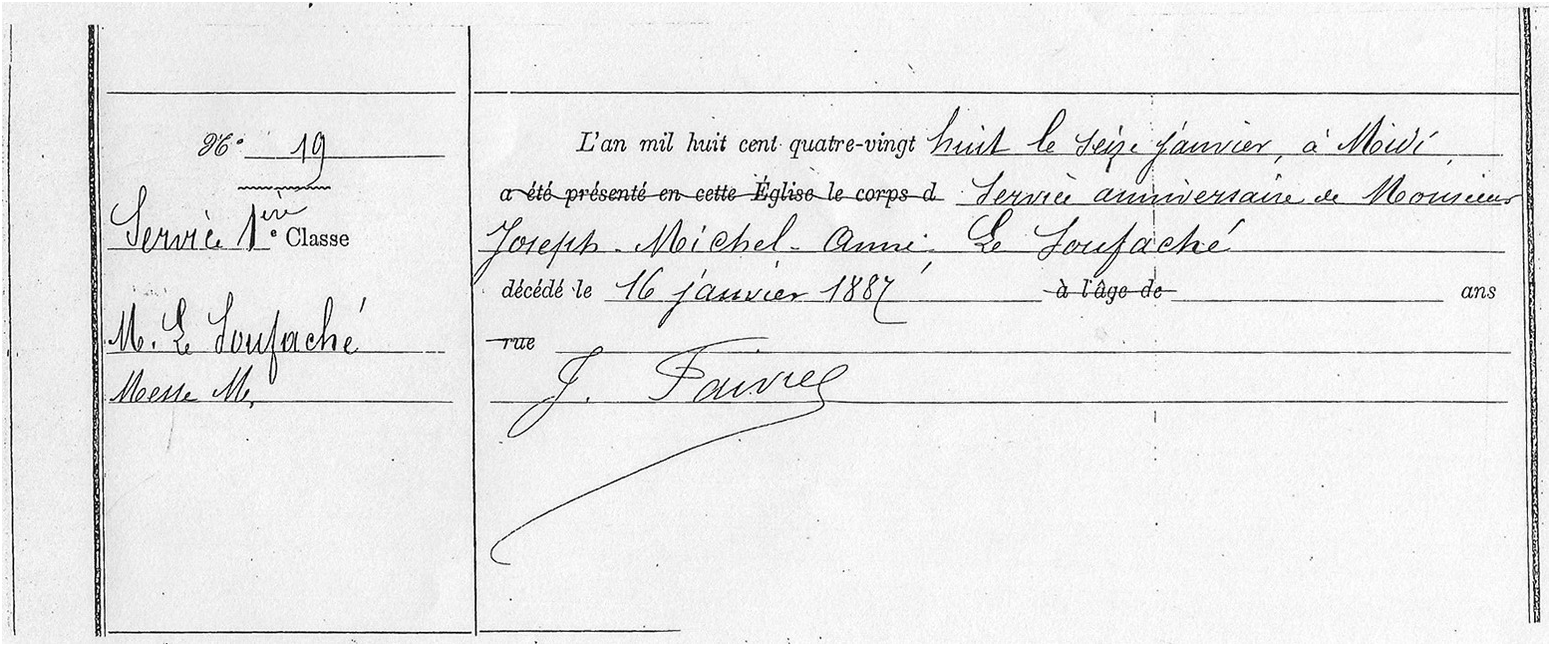 N° 19
Service 1ère Classe
M. Le Soufaché
Messe M.
L'an mil huit cent quatre-vingt huit le seize janvier, à Midi
a été présenté en cette Église le corps d Service anniversaire de Monsieur
Joseph-Michel-Anne Le Soufaché
décédé le 16 janvier 1887 à l'âge de ans
rue
J. Faivre